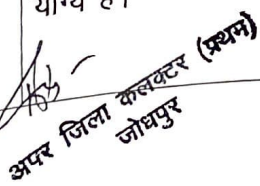 योग्य है।
अपर जिला कलक्टर (प्रथम)
जोधपुर